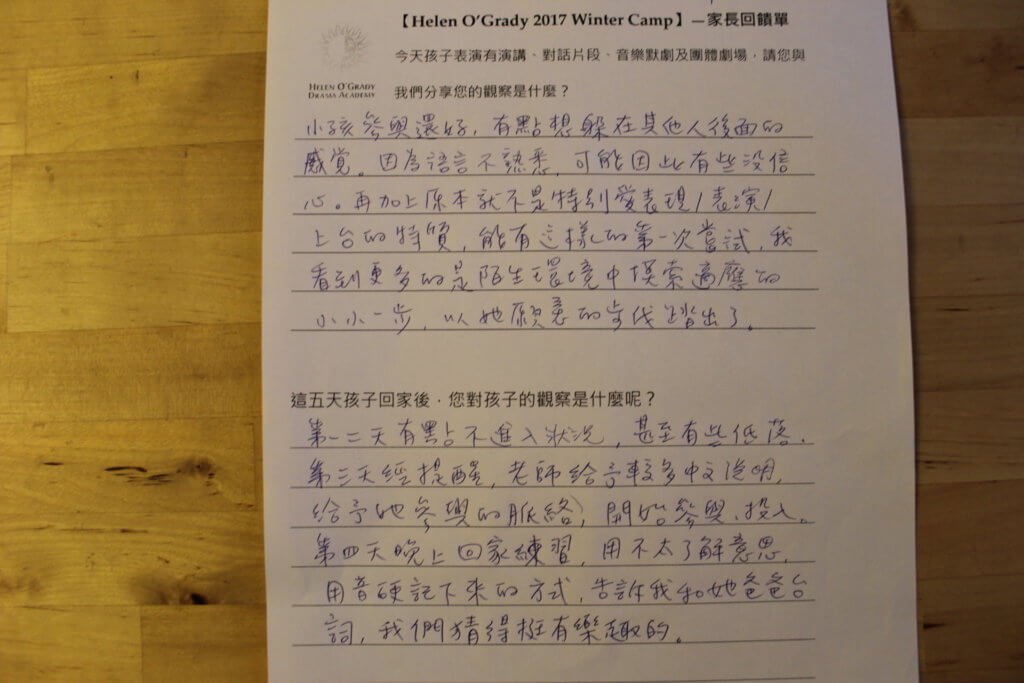 【Helen O'Grady 2017 Winter Camp】—家長回饋單
今天孩子表演有演講、對話片段、音樂默劇及團體劇場，請您與
HELEN O'GRADY
DRAMA ACADEMY
我們分享您的觀察是什麼？
小孩參與還好，有點想躲在其他人後面的
感覚。因為語言不熟悉，可能因此有些没信
心。再加上原本就不是特别愛表現/表演/
上台的特質，能有這樣的第一次嘗試，我
看到更多的是陌生環境中摸索適應的
小小一步，以她願意的步伐踏出了。
這五天孩子回家後，您對孩子的觀察是什麼呢？
第一二天有點不進入狀況，甚至有些低落。
第三天經提醒，老師給予較多中文說明，
給予她參與的脈絡，開始參與、投入。
第四天晚上回家練習，用不太了解意思，
用音硬記下來的方式，告訴我和她爸爸台
詞，我們猜得挺有樂趣的。